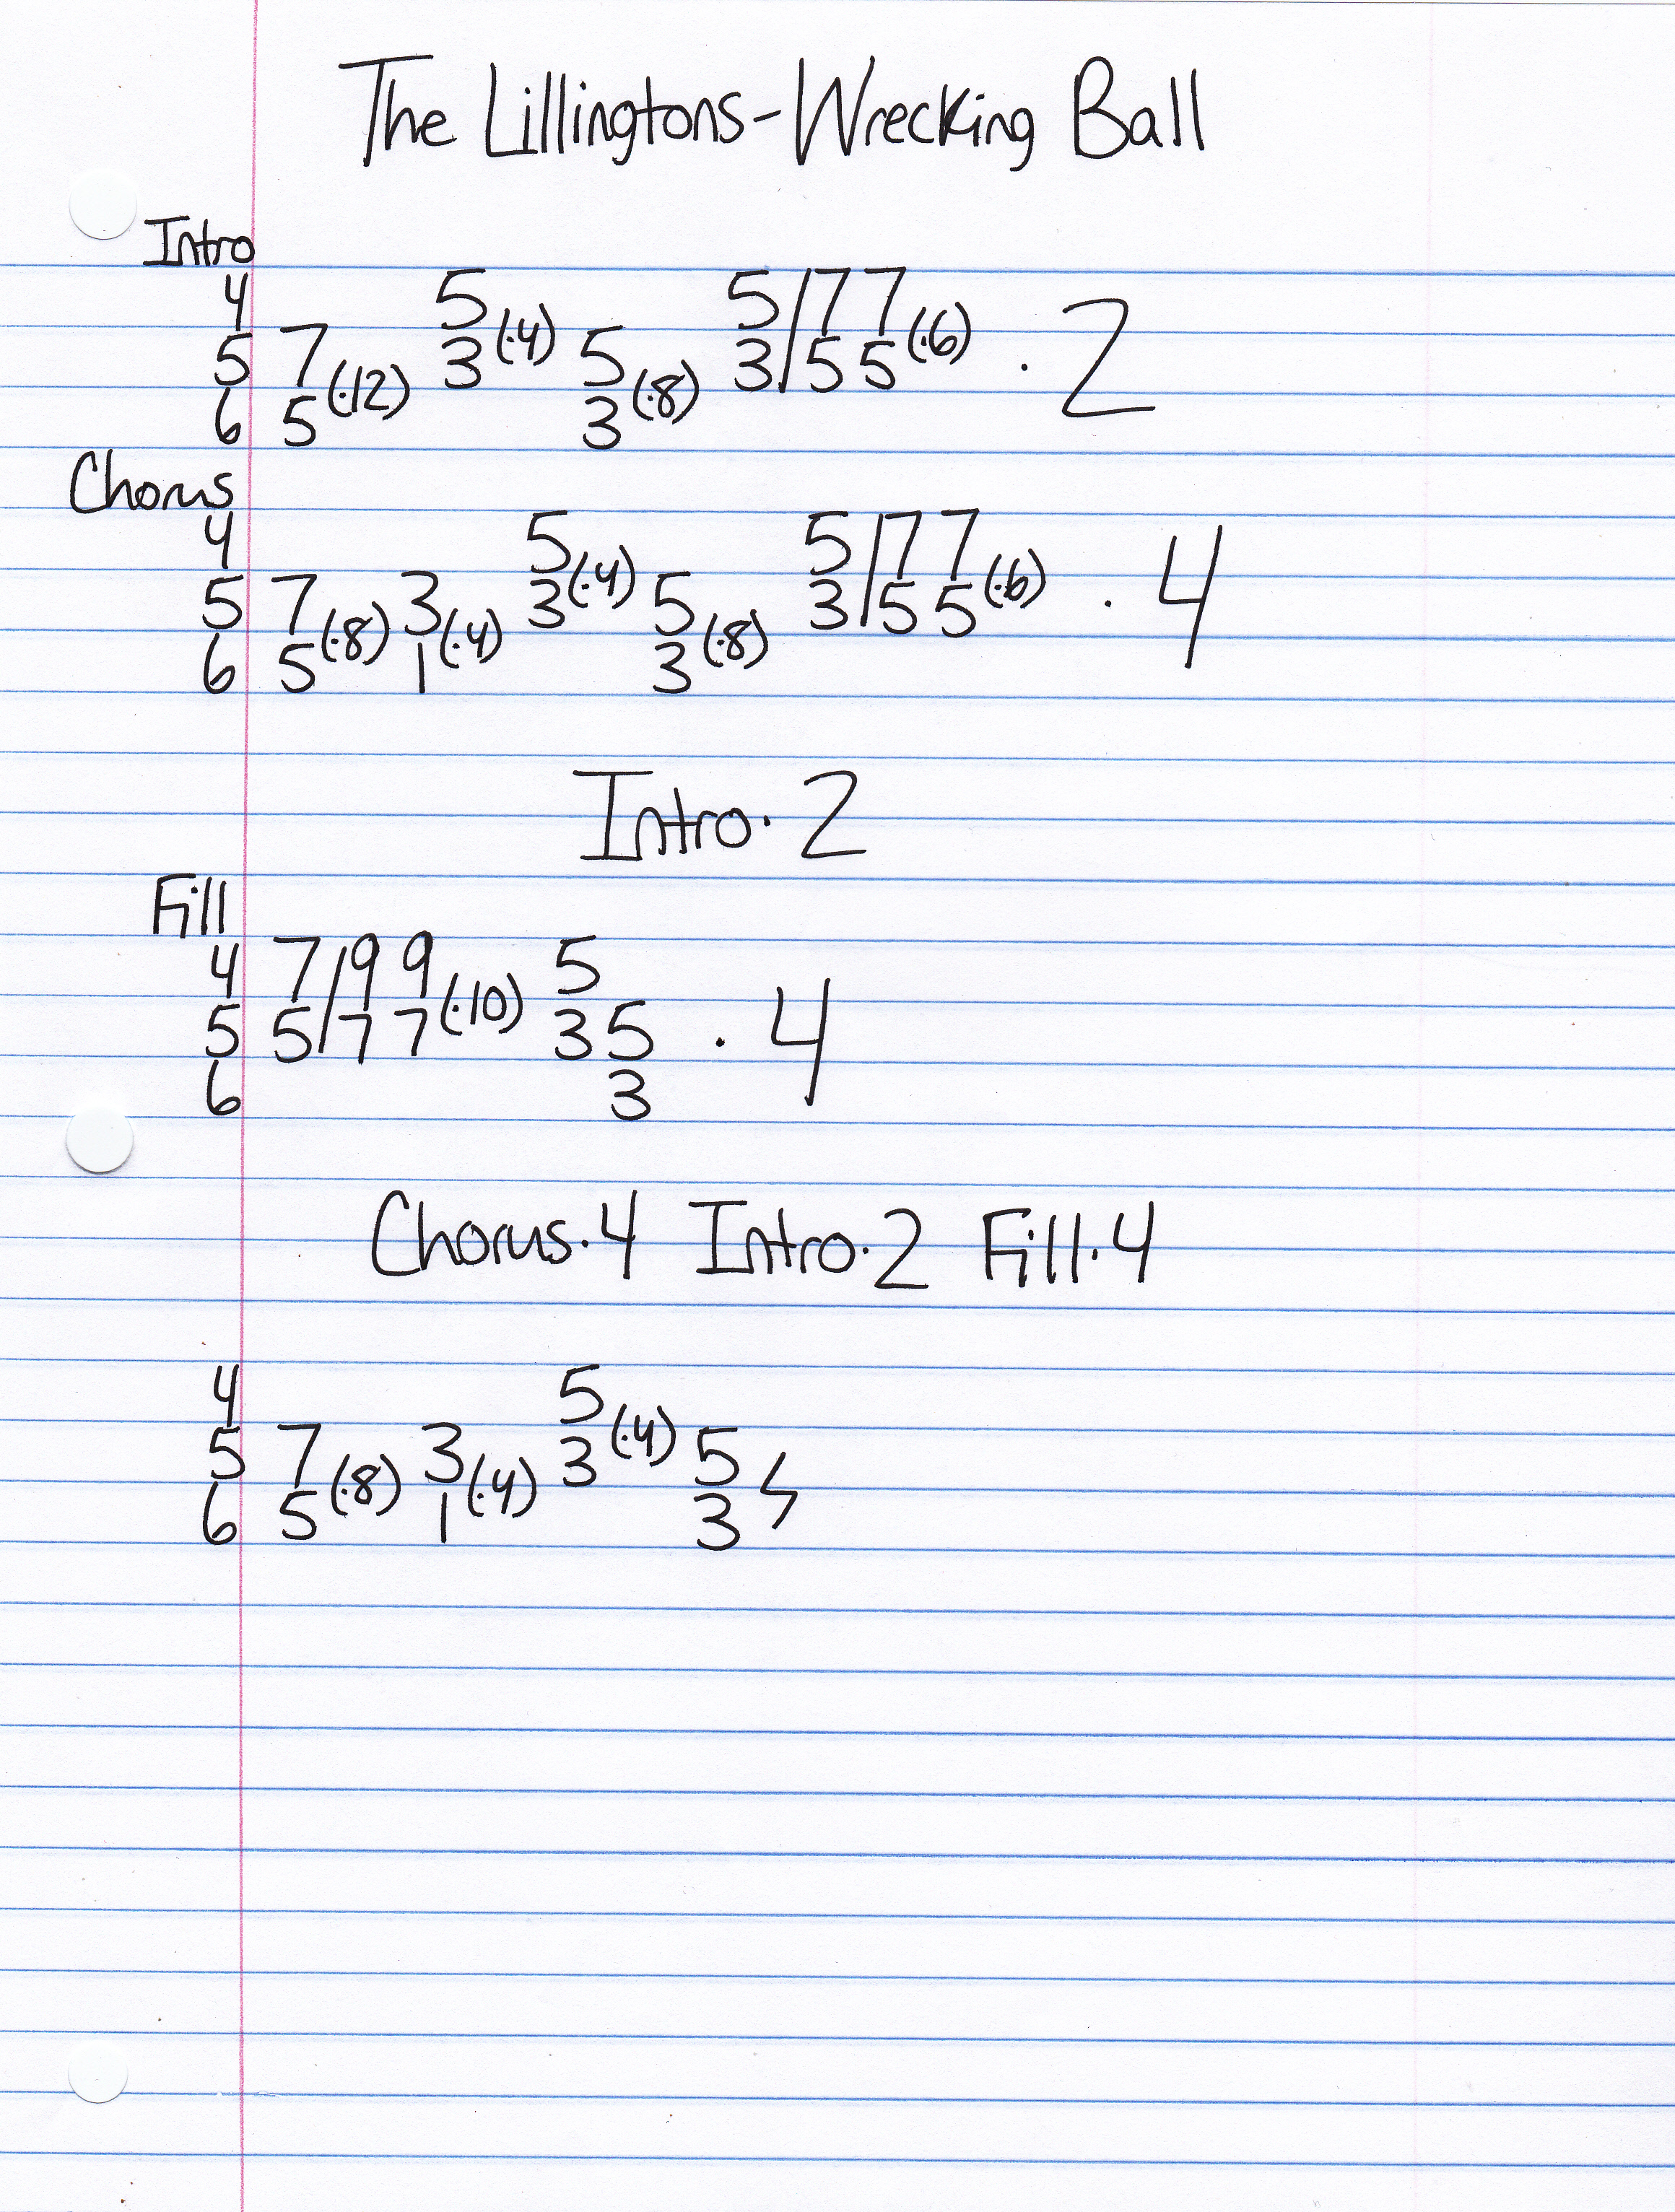 The Lillingtons-Wrecking Ball
Intro
4 5 5/7 7
5 7 3(·4) 5 3/5 5(·6) · 2
6 5(·12) 3(·8)
Chorus
4 5 5/7 7
5 7 3 3(·4) 5 3/5 5(·6) · 4
6 5(·8) 1(·4) 3(·8)
Intro·2
Fill
4 7/9 9 5
5 5/7 7(·10) 3 5 · 4
6 3
Chorus·4 Intro·2 Fill·4
4 5
5 7 3 3(·4) 5
6 5(·8) 1(·4) 3